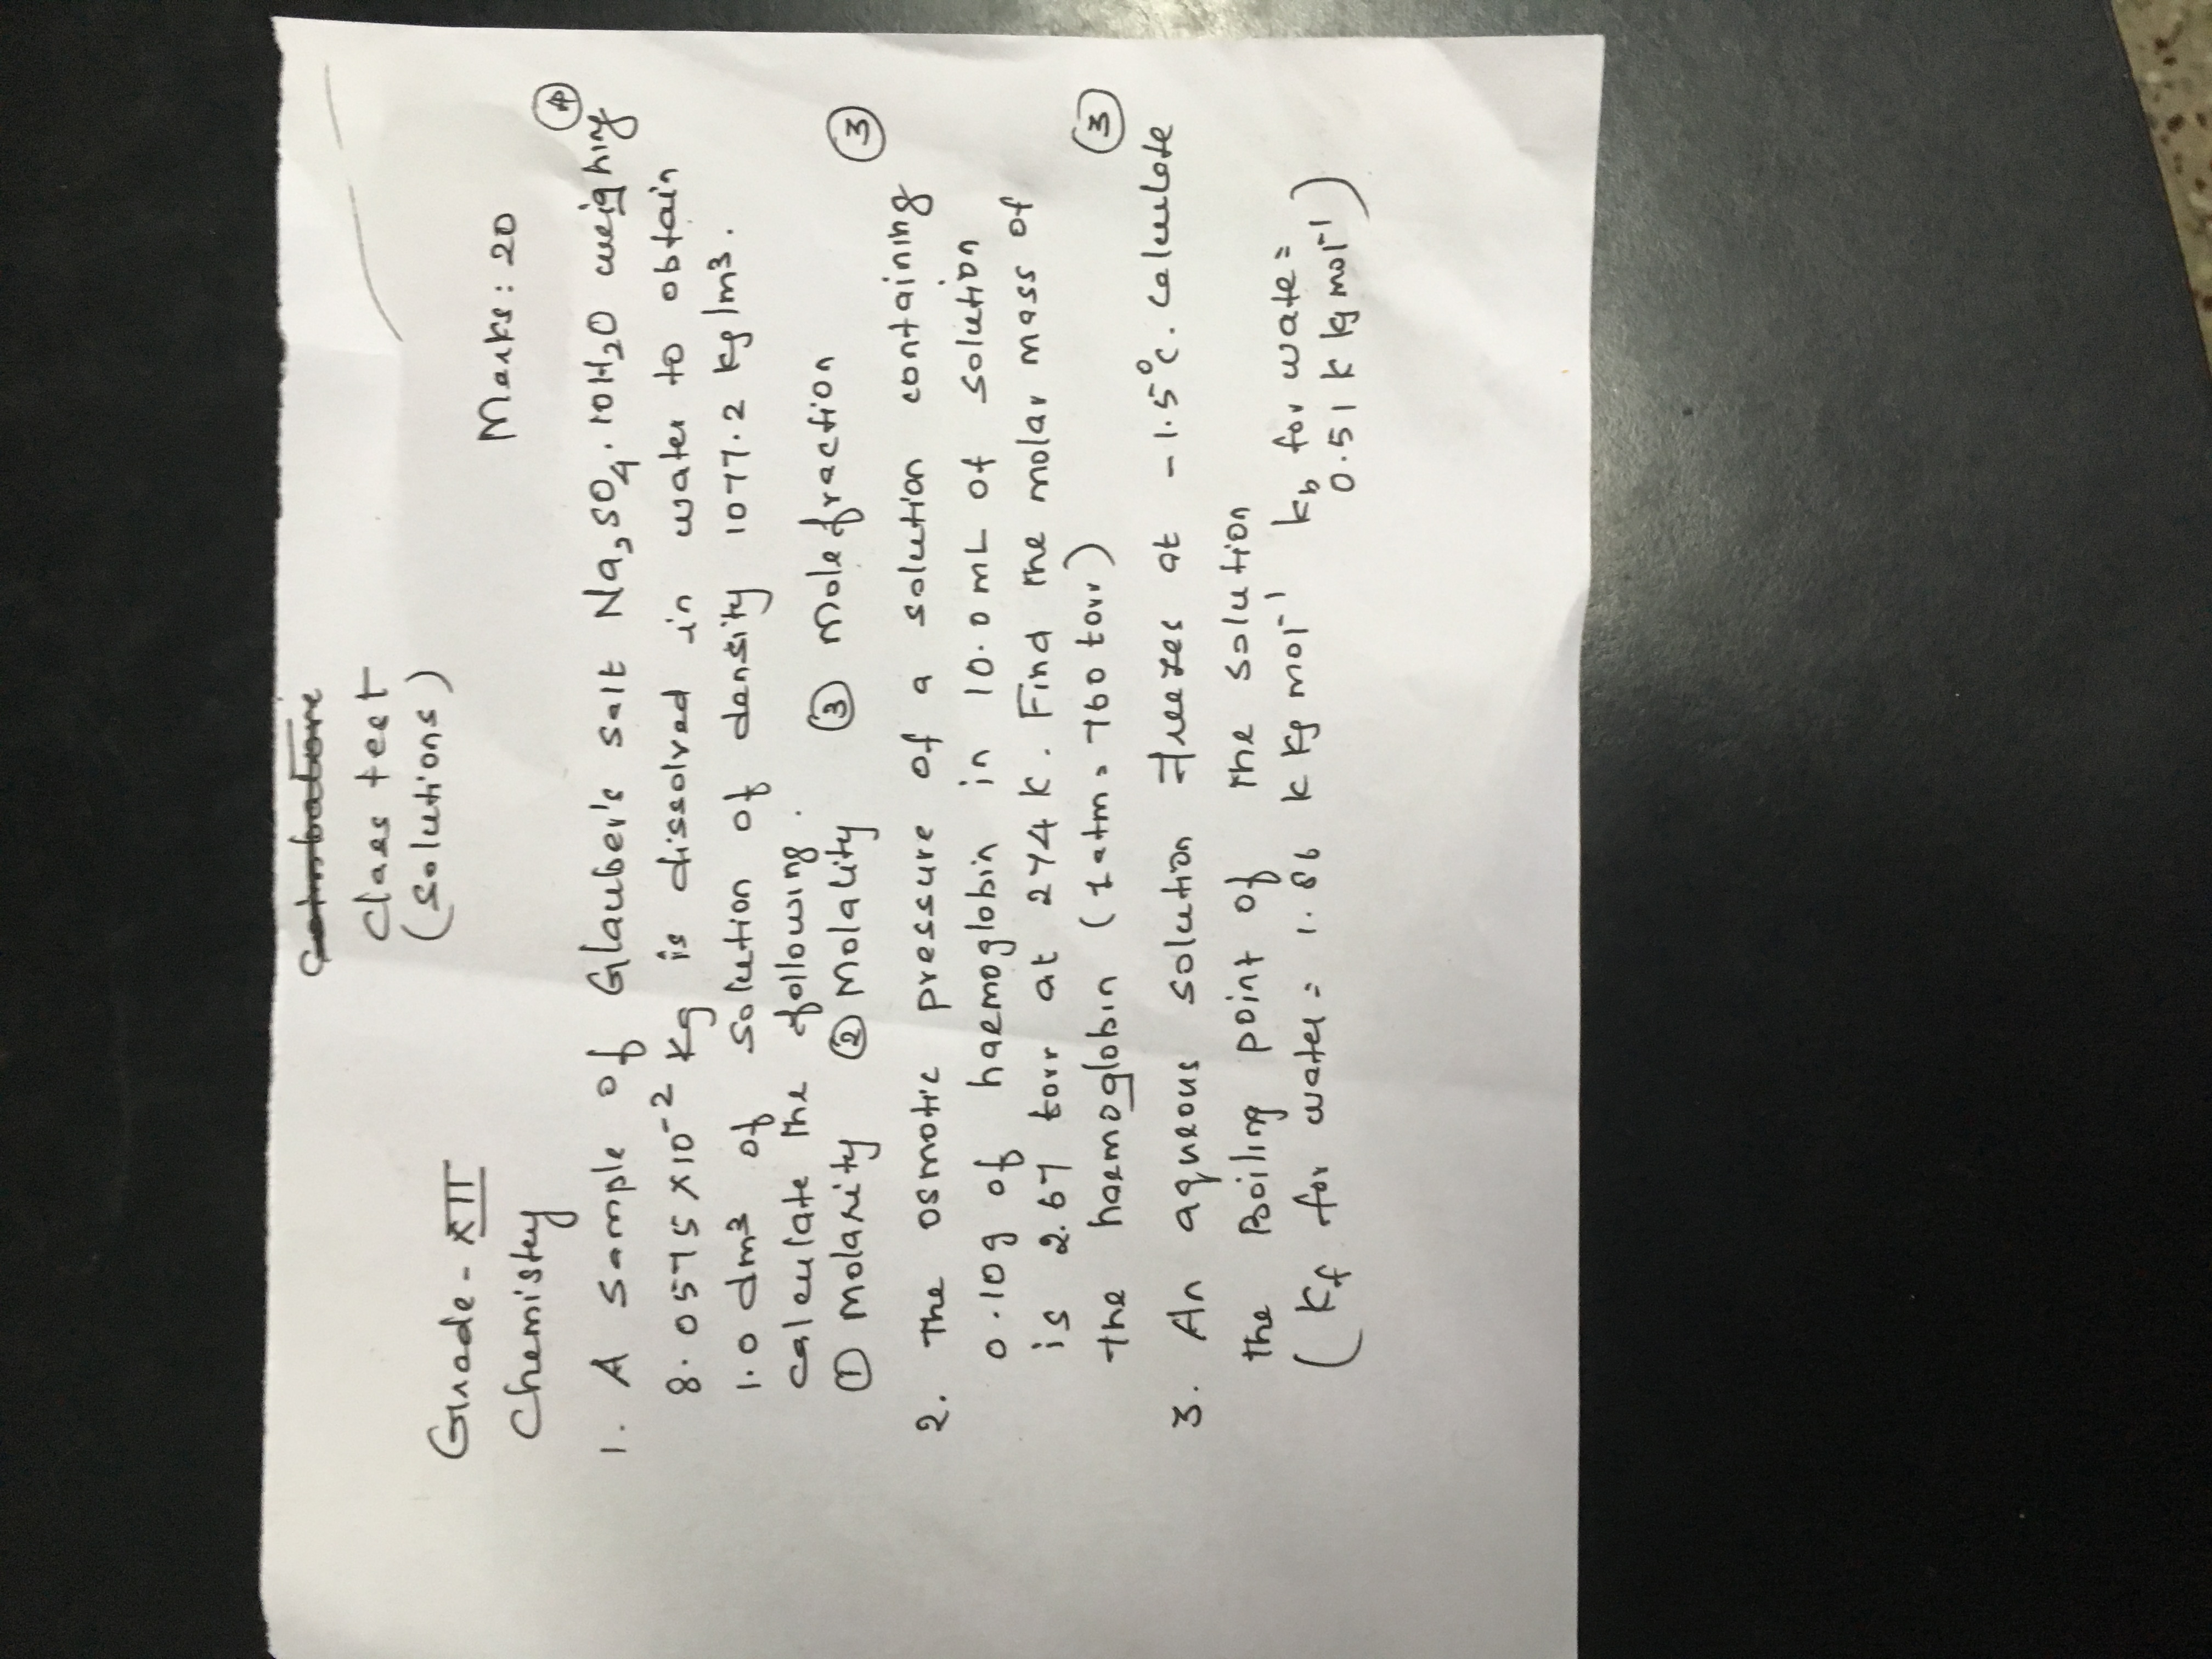 Coimbatore
Class test
(Solutions)
Grade - XII
Marks: 20
Chemistry
4
1. A sample of Glauber's salt Na2SO4.10H2O weighing
8.0575 x 10-2 kg is dissolved in water to obtain
1.0 dm3 of solution of density 1077.2 kg/m3.
calculate the following.
① Molarity ② Molality ③ Mole fraction
3
2. The osmotic pressure of a solution containing
0.10g of haemoglobin in 10.0 mL of solution
is 2.67 torr at 274 K. Find the molar mass of
the haemoglobin (1 atm = 760 torr)
3
3. An aqueous solution freezes at -1.5°c. calculate
the Boiling point of the solution
(Kf for water = 1.86 K kg mol-1 kb for wate =
0.51 K kg mol-1)